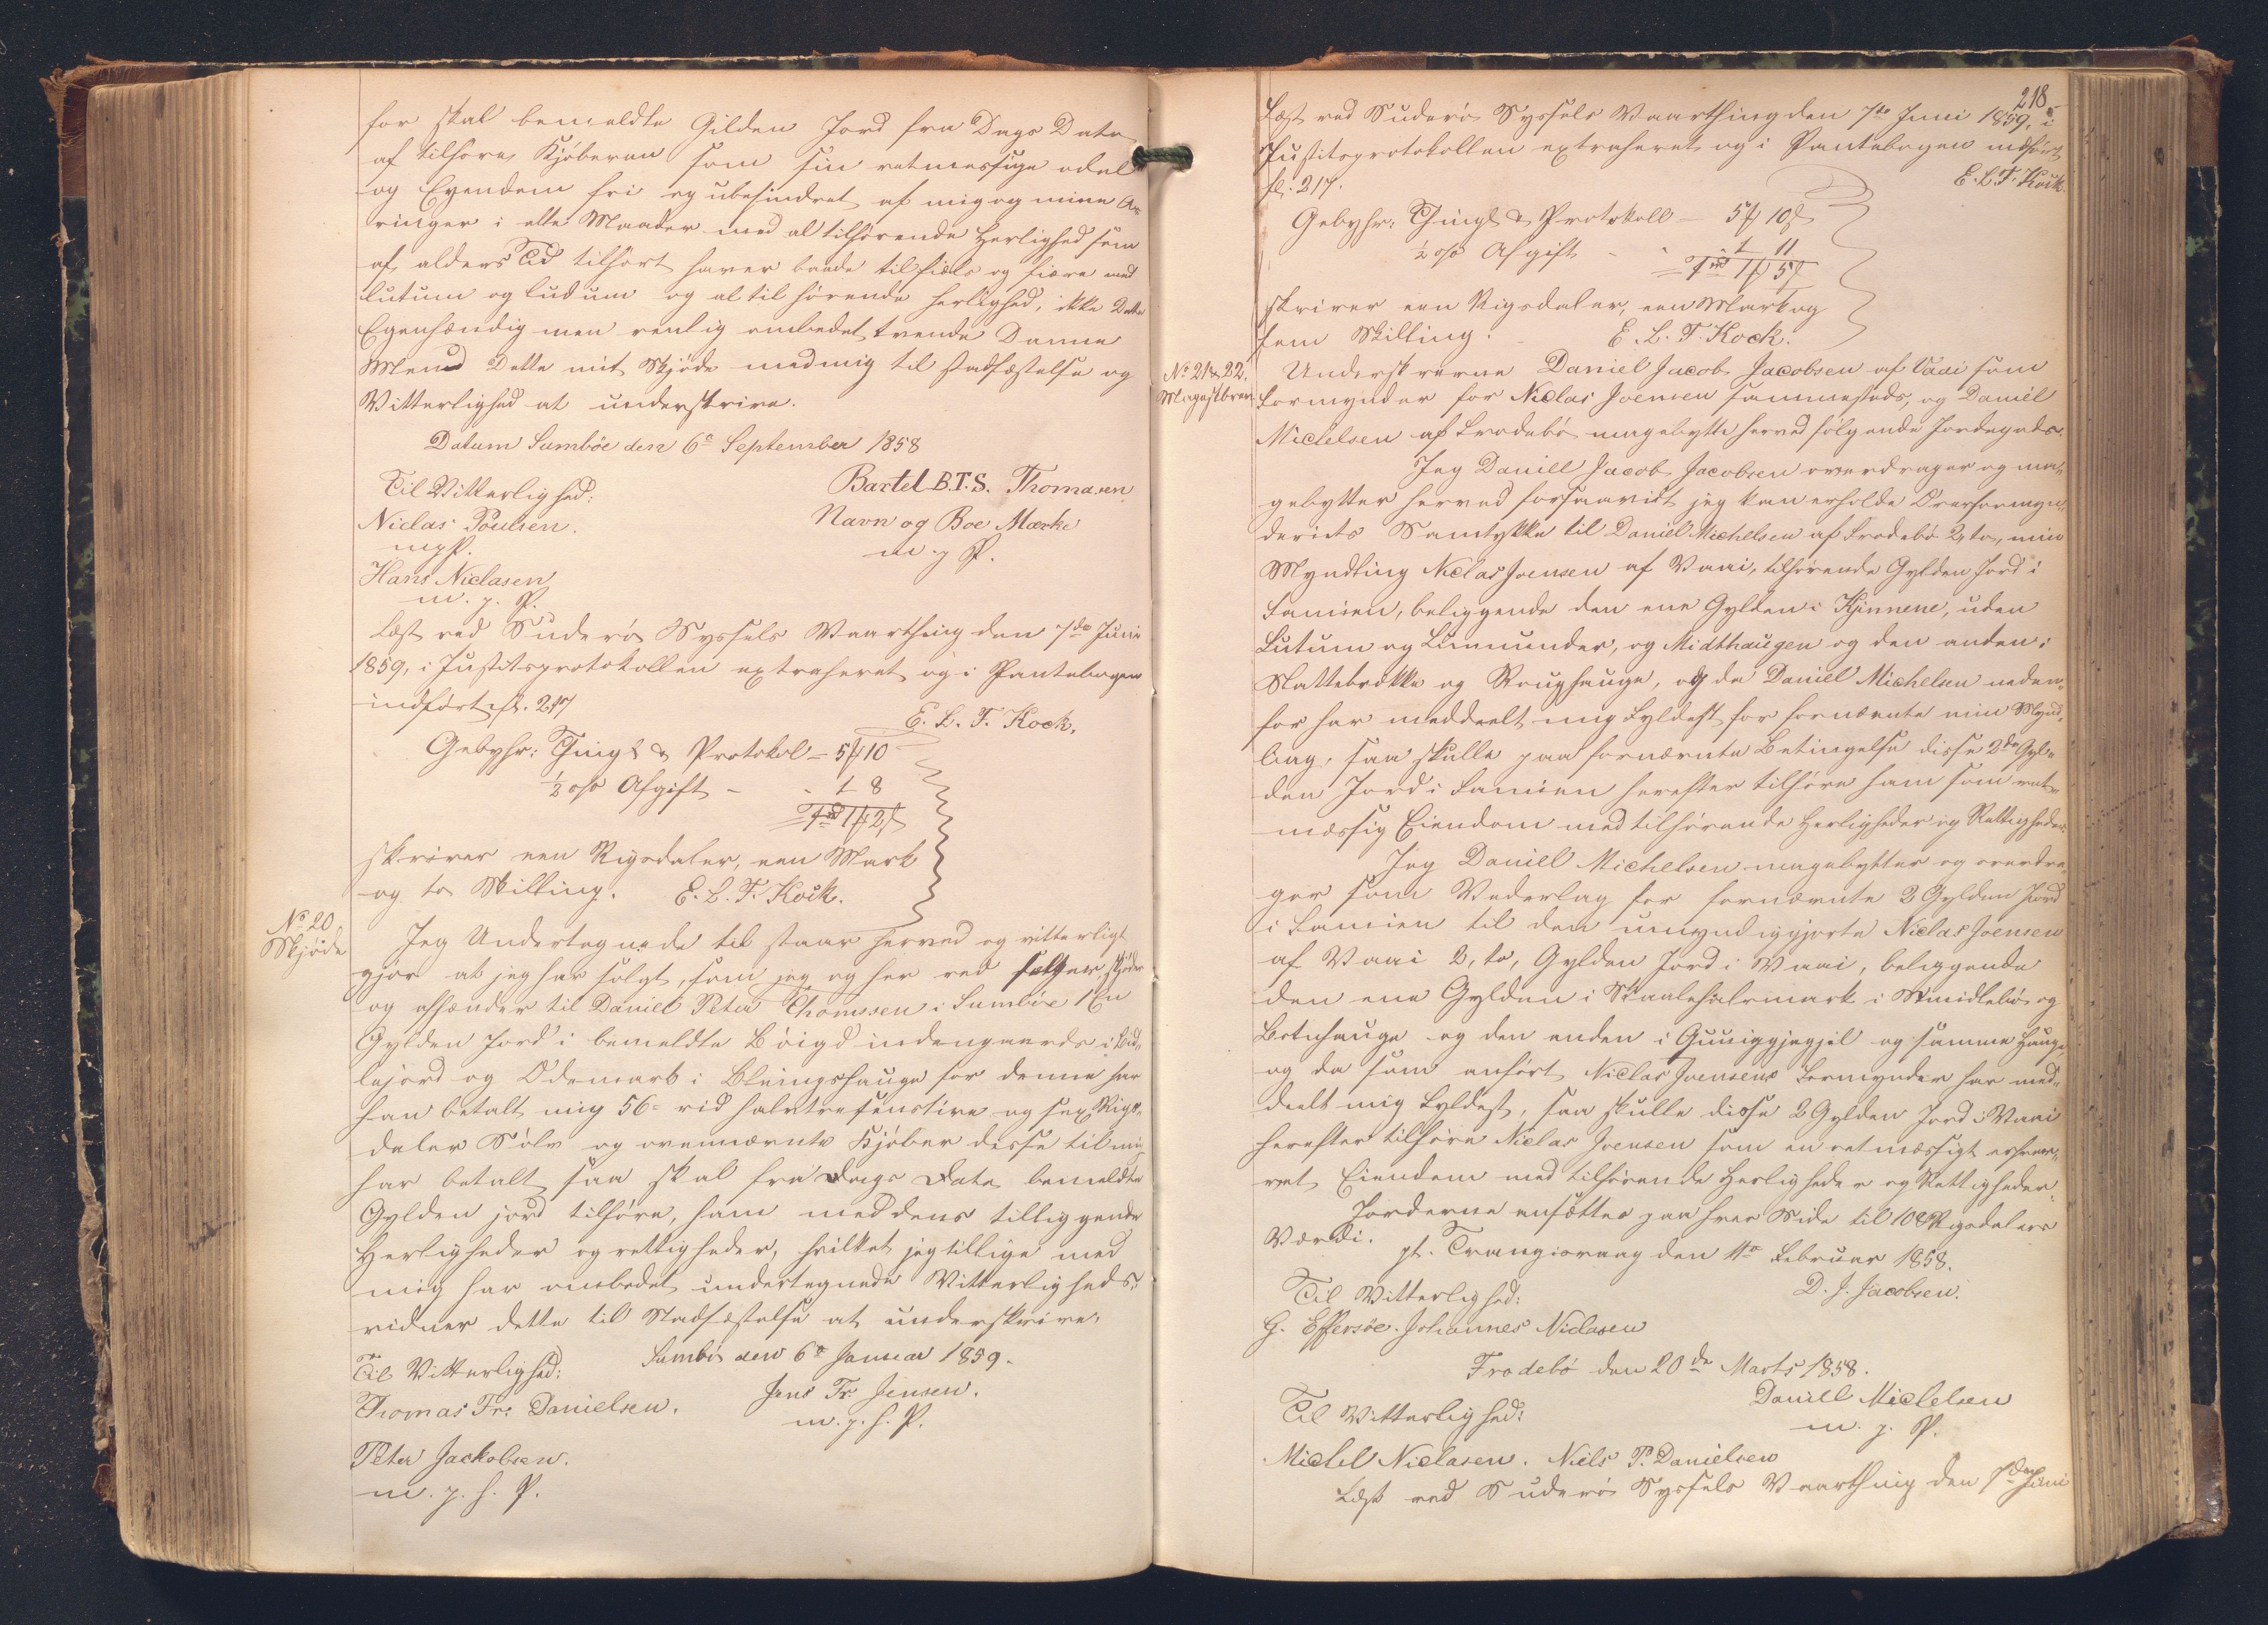 for skal bemeldte Gilden Jord fra Dags Dato
af tilhøre Kjøberen som sin retmessige odel
og Eyendom fri og ubehindret af mig og mine Ar-
vinger i alle Maader med al tilhørende Herlighed som
af alders Tid tilhørt haver baade til fiels og fiære med
lutum og ludum og al til hørende herlighed, ikke Dette
Egenhændig men venlig ombedet tvende Danne
Mend Dette mit Skjøde med mig til stadfæstelse og
Vitterlighed at underskrive.
Datum Sumböe den 6e September 1858
Til Vitterlighed: Bartel B.T.S. Thomasen
Niclas Poulsen. Navn og Boe Mærke
m p P. m. p P.
Hans Niclasen
m. p. P.
Læst ved Suderø Syssels Vaarthing den 7de Juni
1859, i Justitsprotokollen extraheret og i Pantebogen
indført fl. 217
E. L. T. Kock.
Gebyhr: Thingl & Protokol - 5 ꝳ 10
½ o/o Afgift - - 1 8
1 rd 1 ꝳ 2 ß
skriver een Rigsdaler, een Mark
og to Skilling. E. L. T. Kock.
No 20
Skjøde
Jeg Undertegnede til staar herved og vitterligt
gjør at jeg har solgt, som jeg og her ved sælger, skjøder
og afhænder til Daniel Peter Thomsen i Sumböe 1 En
Gylden Jord i bemeldte Böigd indengaards i
lejord og Odemark i Bleingshauge for denne har
han betalt mig 56 = rid halvtresenstive og sex Rigs-
daler Sölv og ovennævnte Kjøber disse til mig
har betalt saa skal fra Dags Dato bemeldte
Gylden jord tilhøre, ham med dens tilliggende
Herligheder og rettigheder, hvilket jeg tillige med
mig har ombedet undertegnede Vitterligheds-
vidner dette til Stadfæstelse at underskrive,
Sumbø den 6e Januar 1859.
Til Vitterlighed: Jens Fr. Jensen.
Thomas Fr. Danielsen. m. p. h. P.
Peter Jackobsen.
m. p. h. P.
218
Læst ved Suderø Syssels Vaarthing den 7de Juni 1859, i
Justitsprotokollen extraheret og i Pantebogen indført
fl. 217.
E. L. T. Kock
Gebyhr: Thingl & Protokoll - 5 ꝳ 10 ß
½ o/o Afgift - - 1 11
1 rd 1 ꝳ 5 ß
skriver een Rigsdaler, een Mark og
fem Skilling. E. L. T. Kock.
No 21 & 22.
Mageskiftebrev.
Underskrevne Daniel Jacob Jacobsen af Vaai som
Formynder for Niclas Joensen sammesteds, og Daniel
Michelsen af Frodebø magebytte herved følgende Jordegods.
Jeg Daniel Jacob Jacobsen overdrager og ma-
gebytter herved forsaavidt jeg kan erholde Overformyn-
deriets Samtykke til Daniel Michelsen af Frodebø 2, to, min
Myndling Niclas Joensen af Vaai, tilhørende Gylden Jord i
Famien, beliggende den ene Gylden i Kjinnene, uden
Lutum og Lunnunder, og Midthaugen og den anden i
Slattebrekke og Roughauge, og da Daniel Michelsen neden-
for har meddeelt mig Fyldest for fornævnte min Mynd-
ling, saa skulle paa fornævnte Betingelse disse 2de Gyl-
den Jord i Famien herefter tilhøre ham som ret-
mæssig Eiendom med tilhørende Herligheder og Rettigheder.
Jeg Daniel Michelsen magebytter og overdra-
ger som Vederlag for fornævnte 2 Gylden Jord
i Famien til den umyndiggjorte Niclas Joensen
af Vaai 2, to, Gylden Jord i Vaai, beliggende
den ene Gylden i Skaalehalvmark i Smidlebø og
Botnhauge og den anden i Gunniggjegjil og samme Hauge,
og da som anført Niclas Joensens Formynder har med-
deelt mig Fyldest, saa skulle disse 2 Gylden Jord i Vaai
herefter tilhøre Niclas Joensen som en retmæssigt erhver-
vet Eiendom med tilhørende Herligheder og Rettigheder.
Jorderne ansættes paa hver Side til 108 Rigsdalers
Værdi.
pt. Trangisvaag den 11e Februar 1858.
Til Vitterlighed: D. J. Jacobsen.
G. Effersøe. Johannes Niclasen
Frodebø den 20de Marts 1858.
Til Vitterlighed: Daniel Michelsen
m. p. P.
Michel Niclasen. Niels P. Danielsen
Læst ved Suderø Syssels Vaarthing den 7de Juni